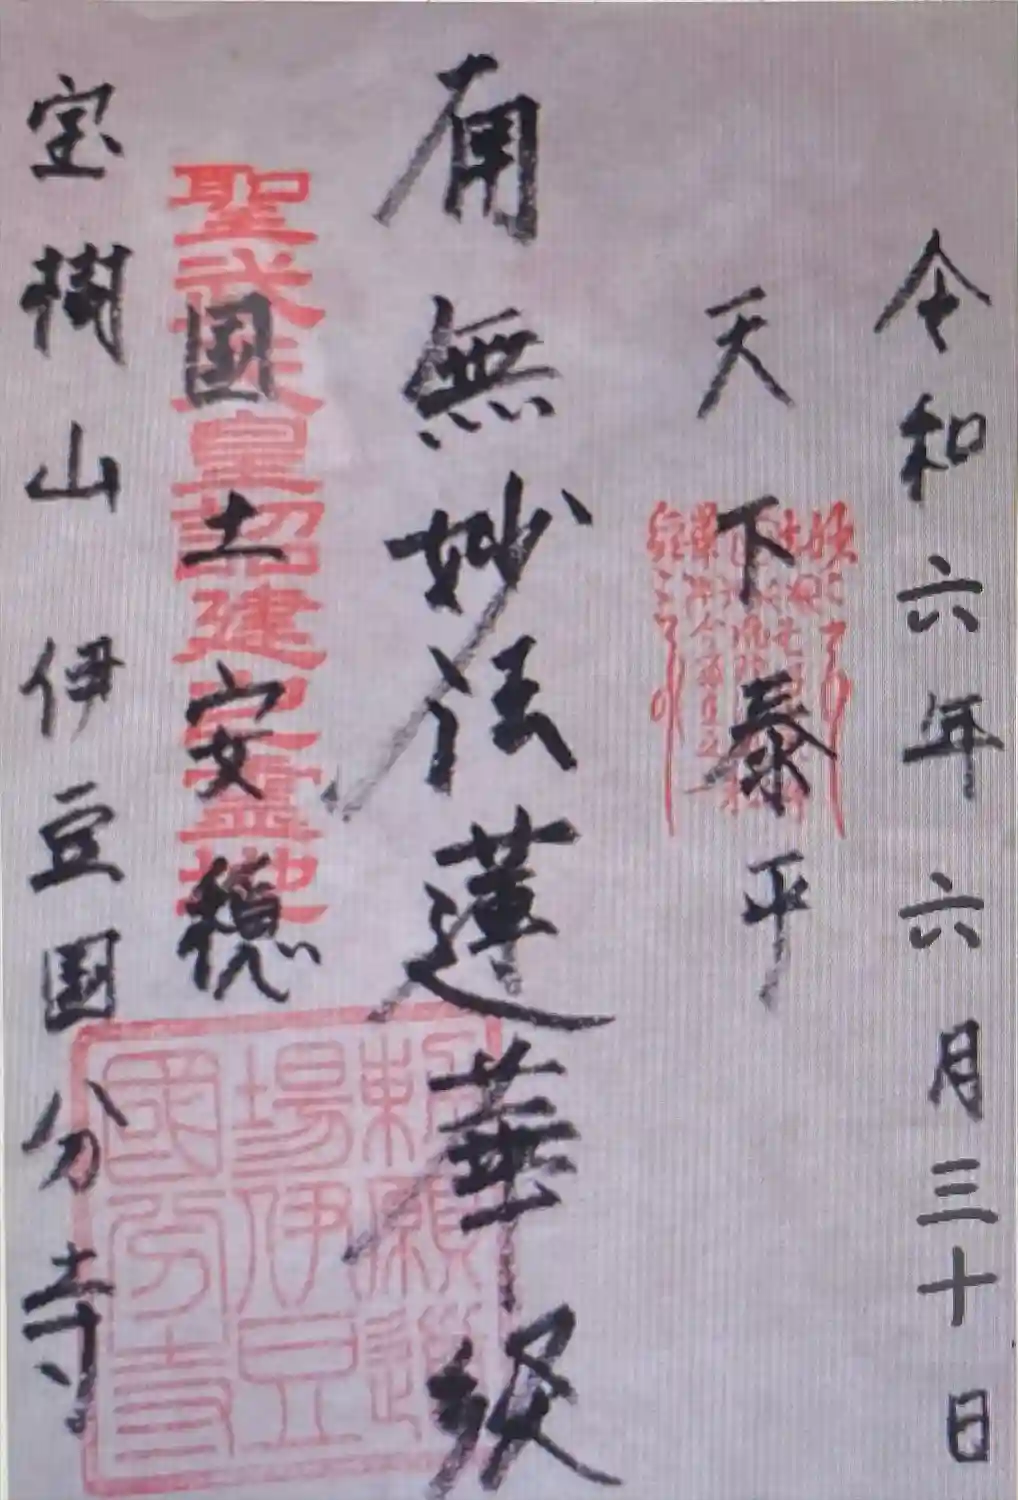 令和六年六月三十日
天下泰平
南無妙法蓮華経
国土安穏
聖武天皇詔建之霊地
宝樹山 伊豆国分寺
勅願道
場伊豆
國分寺